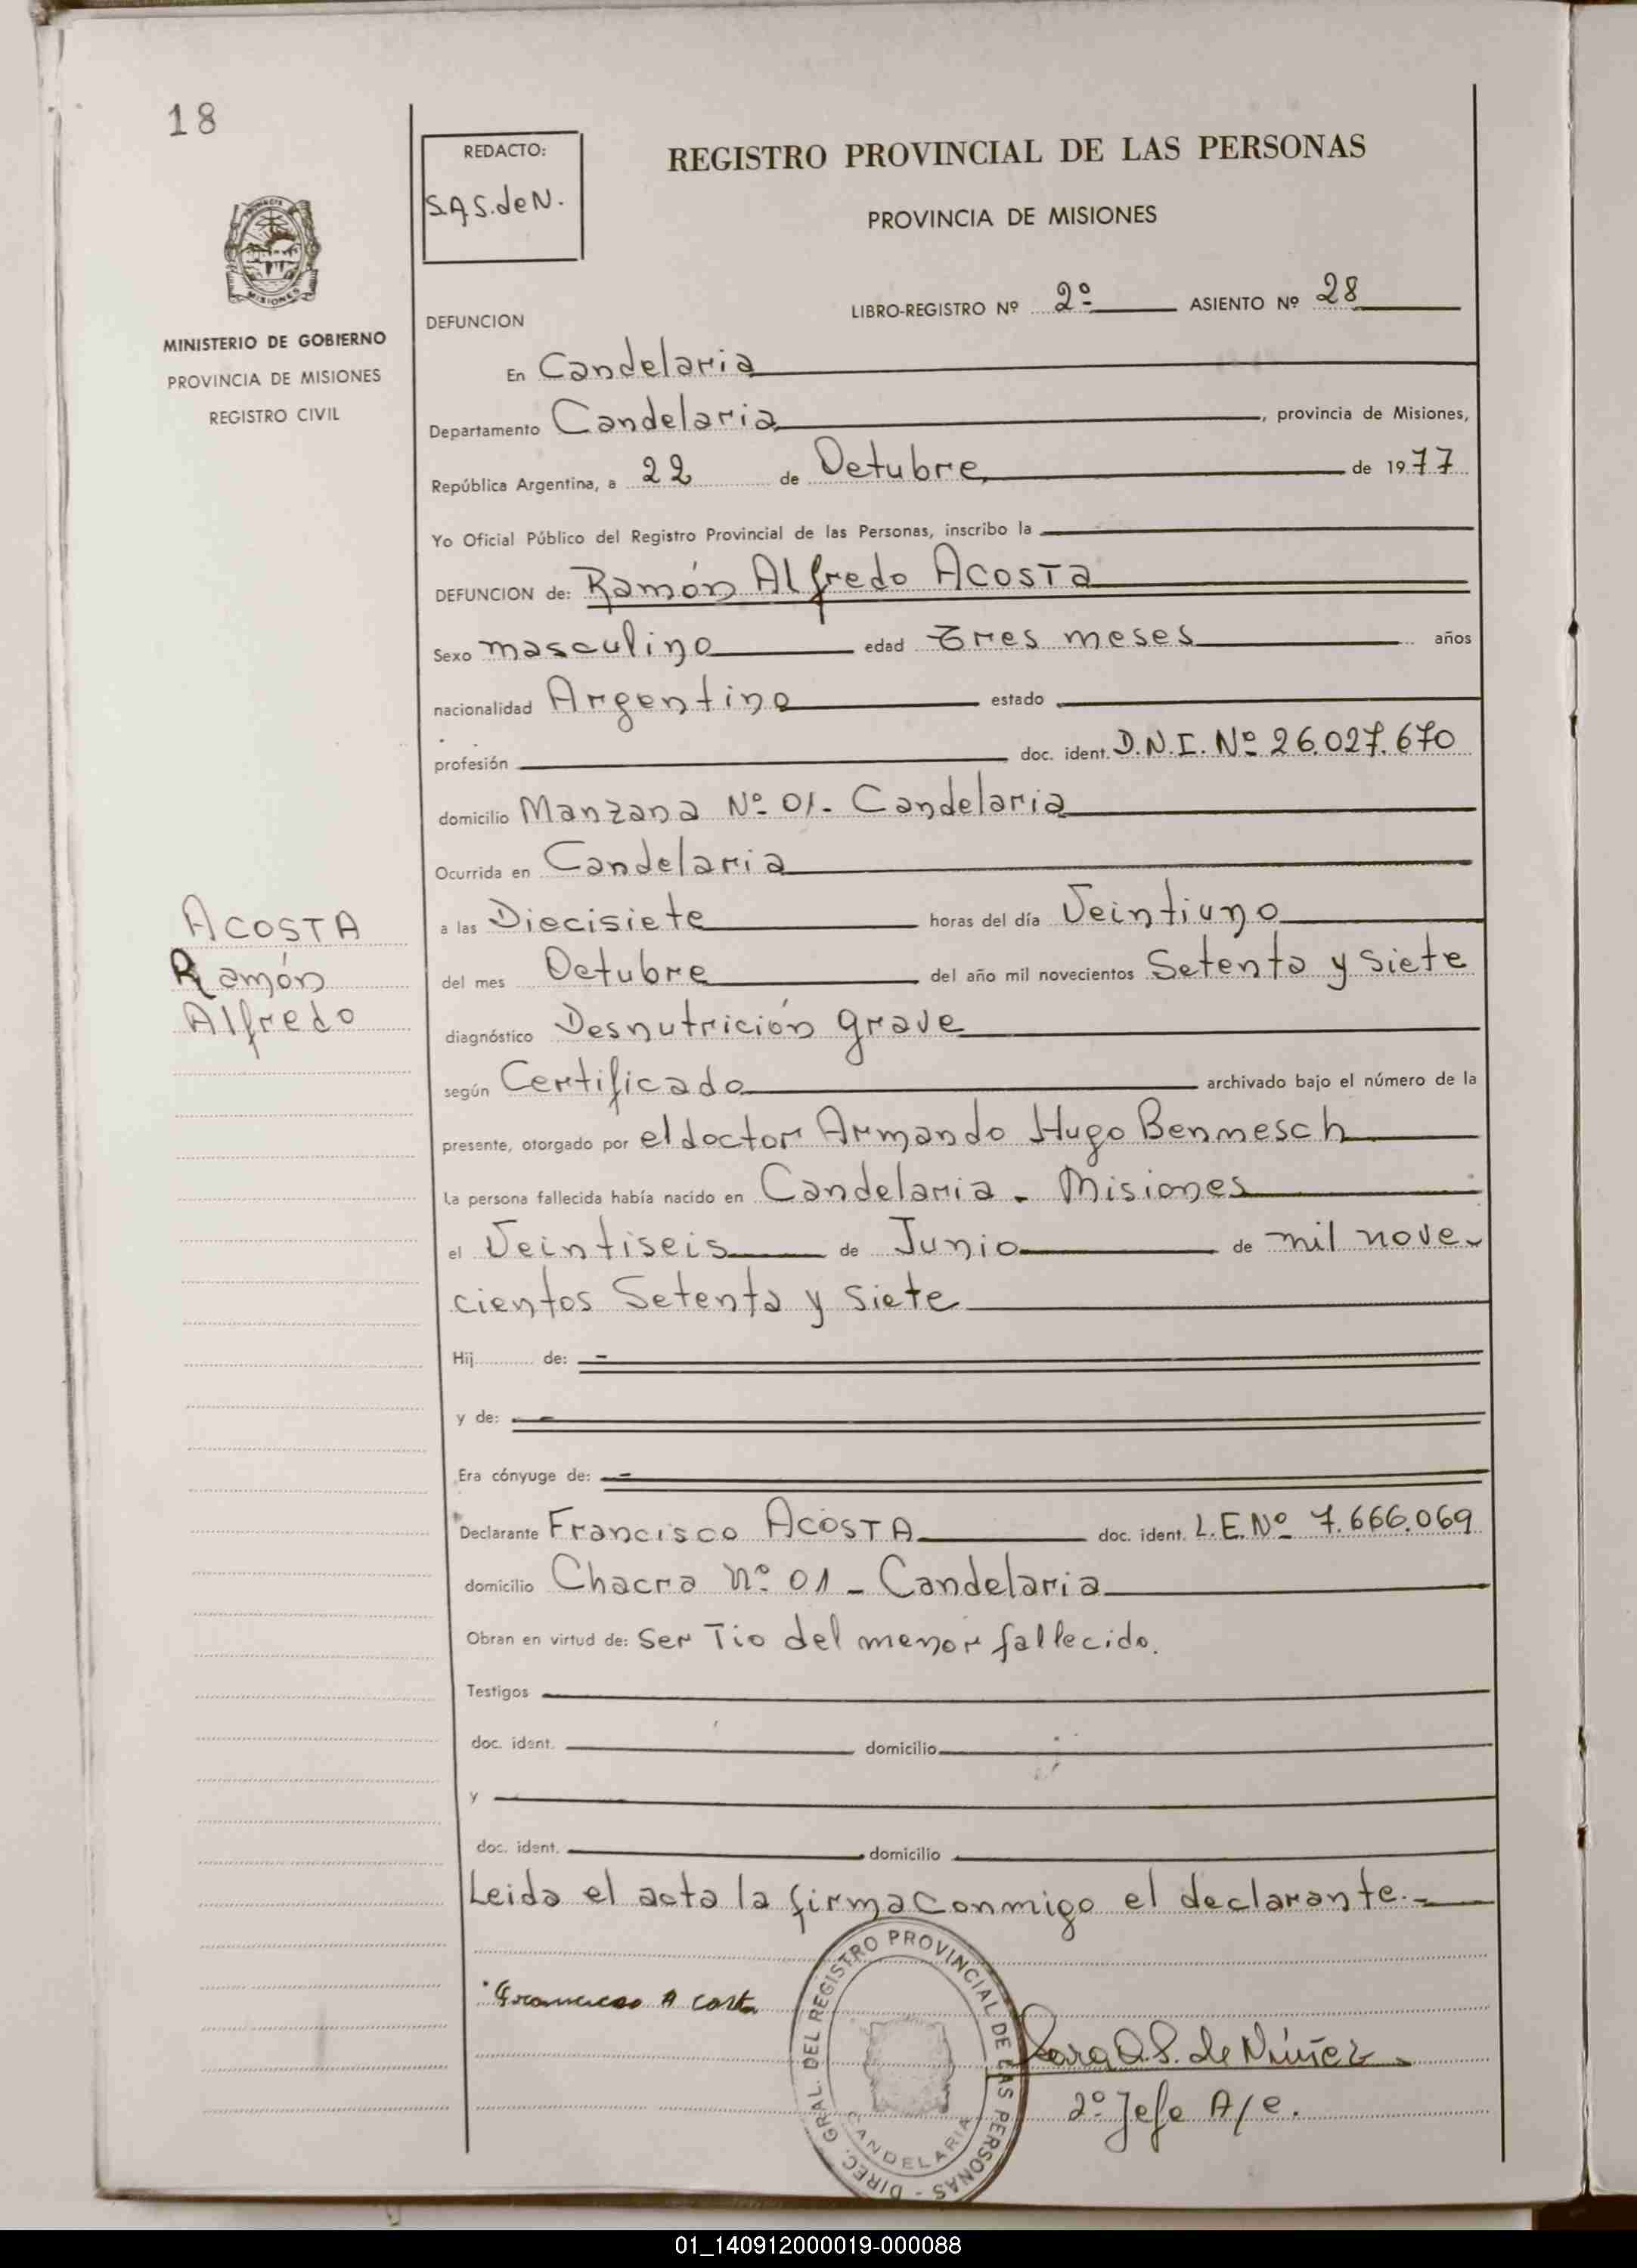 18
REDACTO:
S.A.S.deN.
REGISTRO PROVINCIAL DE LAS PERSONAS
PROVINCIA DE MISIONES
MISIONES
MINISTERIO DE GOBIERNO
PROVINCIA DE MISIONES
REGISTRO CIVIL
LIBRO-REGISTRO Nº 2º ASIENTO Nº 28
DEFUNCION
En Candelaria
Departamento Candelaria, provincia de Misiones,
República Argentina, a 22 de Octubre de 1977
Yo Oficial Público del Registro Provincial de las Personas, inscribo la
DEFUNCION de: Ramón Alfredo Acosta
Sexo masculino edad Tres meses años
nacionalidad Argentino estado
profesión doc. ident. D.N.I. Nº 26.027.670
domicilio Manzana Nº 01. Candelaria
Ocurrida en Candelaria
a las Diecisiete horas del día Veintiuno
del mes Octubre del año mil novecientos Setenta y siete
diagnóstico Desnutrición grave
según Certificado archivado bajo el número de la
presente, otorgado por el doctor Armando Hugo Benmesch
La persona fallecida había nacido en Candelaria - Misiones
el Veintiseis de Junio de mil nove-
cientos Setenta y siete
Hij de: -
y de: -
Era cónyuge de: -
Declarante Francisco ACOSTA doc. ident. L.E.Nº 7.666.069
domicilio Chacra nº 01 - Candelaria
Obran en virtud de: Ser Tio del menor fallecido.
Testigos
doc. ident. domicilio
y
doc. ident. domicilio
Leida el acta la firma conmigo el declarante.-
ACOSTA
Ramón
Alfredo
Francisco A costa
DIREC. GRAL. DEL REGISTRO PROVINCIAL DE LAS PERSONAS -
CANDELARIA
Sara A.S. de Núñez
2º Jefe A/e.
01_140912000019-000088